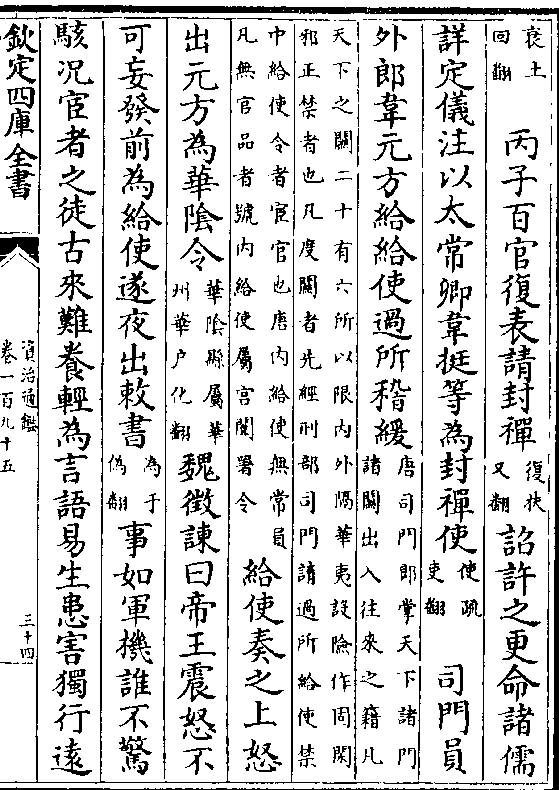 衰土回翻丙子百官復表請封禪復扶又翻詔許之更命諸儒
詳定儀注以太常卿韋挺等為封禪使使疏吏翻司門員
外郎韋元方給給使過所稽緩唐司門郎掌天下諸門諸關出入往來之籍凡
天下之關二十有六所以限内外隔華夷設險作固閑
邪正禁者也凡度關者先經刑部司門請過所給使禁
中給使令者宦官也唐内給使無常員凡無官品者號内給使屬宮闈署令給使奏之上怒
出元方為華陰令華陰縣屬華州華户化翻魏徵諫曰帝王震怒不
可妄發前為給使遂夜出敕書為于偽翻事如軍機誰不驚
駭況宦者之徒古來難養輕為言語易生患害獨行遠
欽定四庫全書
資治通鑑
卷一百九十五
三十四